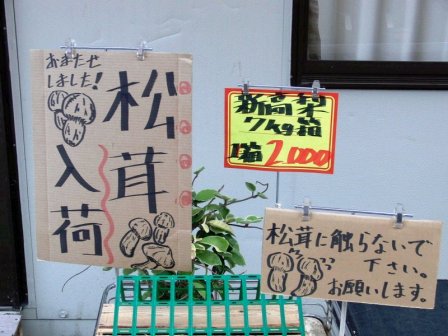 おまたせ
しました!
松茸
入荷
新高梨
7kg箱
1箱 2000
松茸に触らないで
下さい。
お願いします。